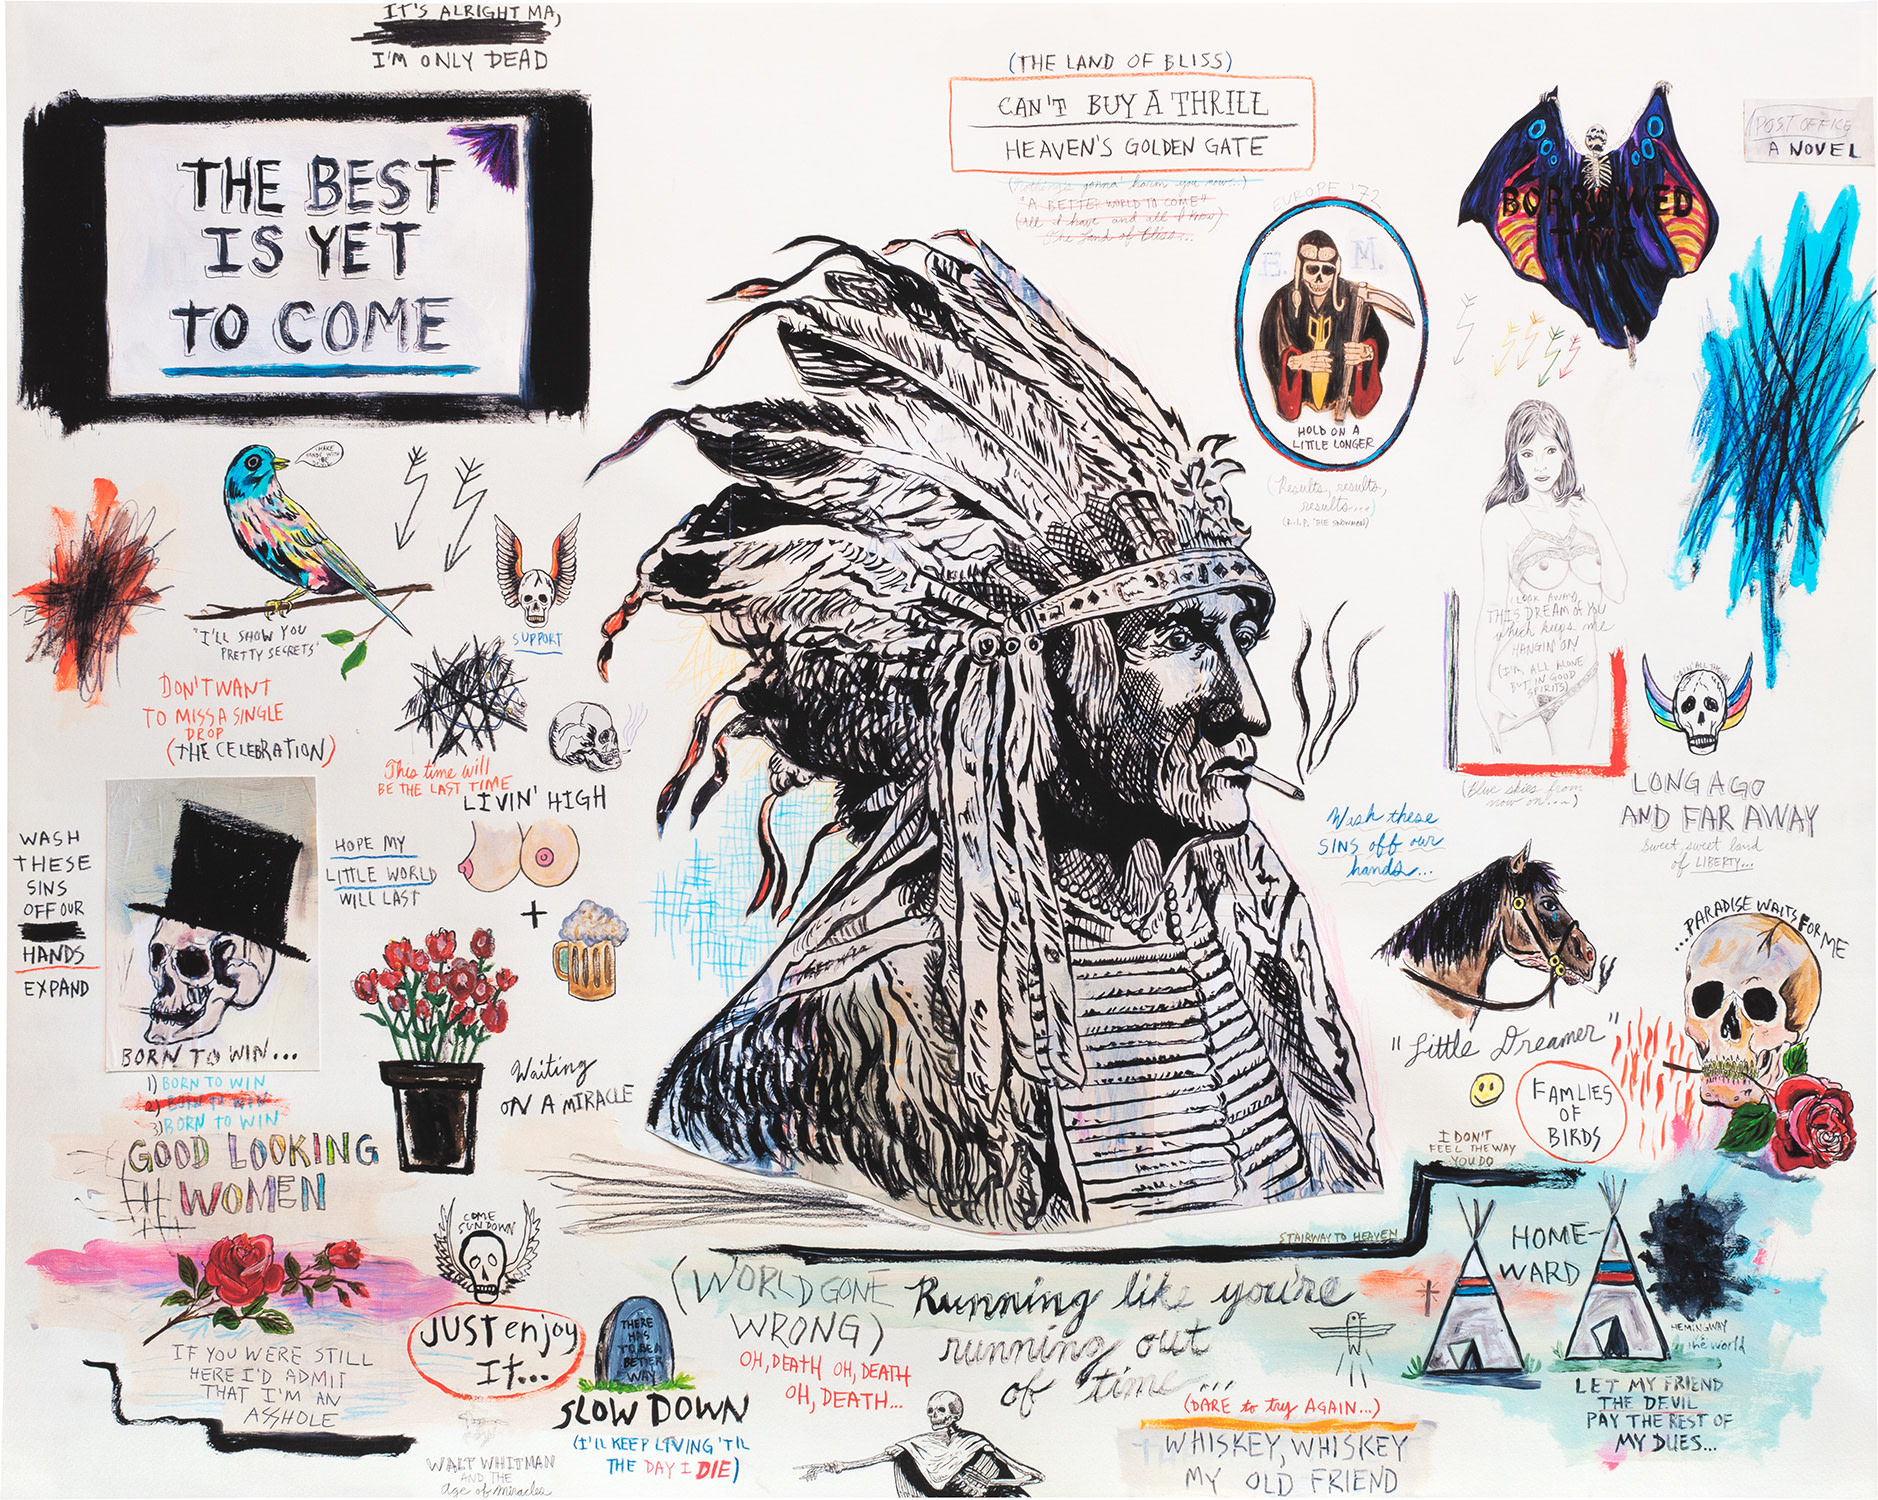 IT'S ALRIGHT MA,
I'M ONLY DEAD
THE BEST
IS YET
TO COME
(THE LAND OF BLISS)
CAN'T BUY A THRILL
HEAVEN'S GOLDEN GATE
(nothing's gonna' harm you now...)
"A BETTER WORLD TO COME"
(All I have and all I know)
The Land of Bliss...
EUROPE '72
E. M.
HOLD ON A
LITTLE LONGER
(Results, results,
results...)
(R.I.P. THE SNOWMAN)
BORROWED
TIME
POST OFFICE
A NOVEL
"I'LL SHOW YOU
PRETTY SECRETS"
SUPPORT
DON'T WANT
TO MISS A SINGLE
DROP
(THE CELEBRATION)
This time will
BE THE LAST TIME
LIVIN' HIGH
I LOOK AWAY,
THIS DREAM OF YOU
which keeps me
HANGIN' ON
(I'M ALL ALONE
BUT IN GOOD
SPIRITS)
(Blue skies from
now on...)
LONG AGO
AND FAR AWAY
Sweet, sweet land
of LIBERTY...
WASH
THESE
SINS
OFF OUR
HANDS
EXPAND
HOPE MY
LITTLE WORLD
WILL LAST
+
BORN TO WIN...
1) BORN TO WIN
2) BORN TO WIN
3) BORN TO WIN
GOOD LOOKING
WOMEN
Waiting
ON A MIRACLE
Wash these
SINS off our
hands...
"Little Dreamer"
...PARADISE WAITS FOR ME
FAMLIES
OF
BIRDS
I DON'T
FEEL THE WAY
YOU DO
STAIRWAY TO HEAVEN
HOME-
WARD
HEMINGWAY
vs. the world
LET MY FRIEND
THE DEVIL
PAY THE REST OF
MY DUES...
COME
SUNDOWN
IF YOU WERE STILL
HERE I'D ADMIT
THAT I'M AN
ASSHOLE
JUST enjoy
IT...
THERE
HAS
TO BE A
BETTER
WAY
SLOW DOWN
(I'LL KEEP LIVING 'TIL
THE DAY I DIE)
WALT WHITMAN
AND THE
Age of Miracles
(WORLD GONE
WRONG)
OH, DEATH OH, DEATH
OH, DEATH...
Running like you're
running out
of time...
(DARE to try AGAIN...)
WHISKEY, WHISKEY
MY OLD FRIEND